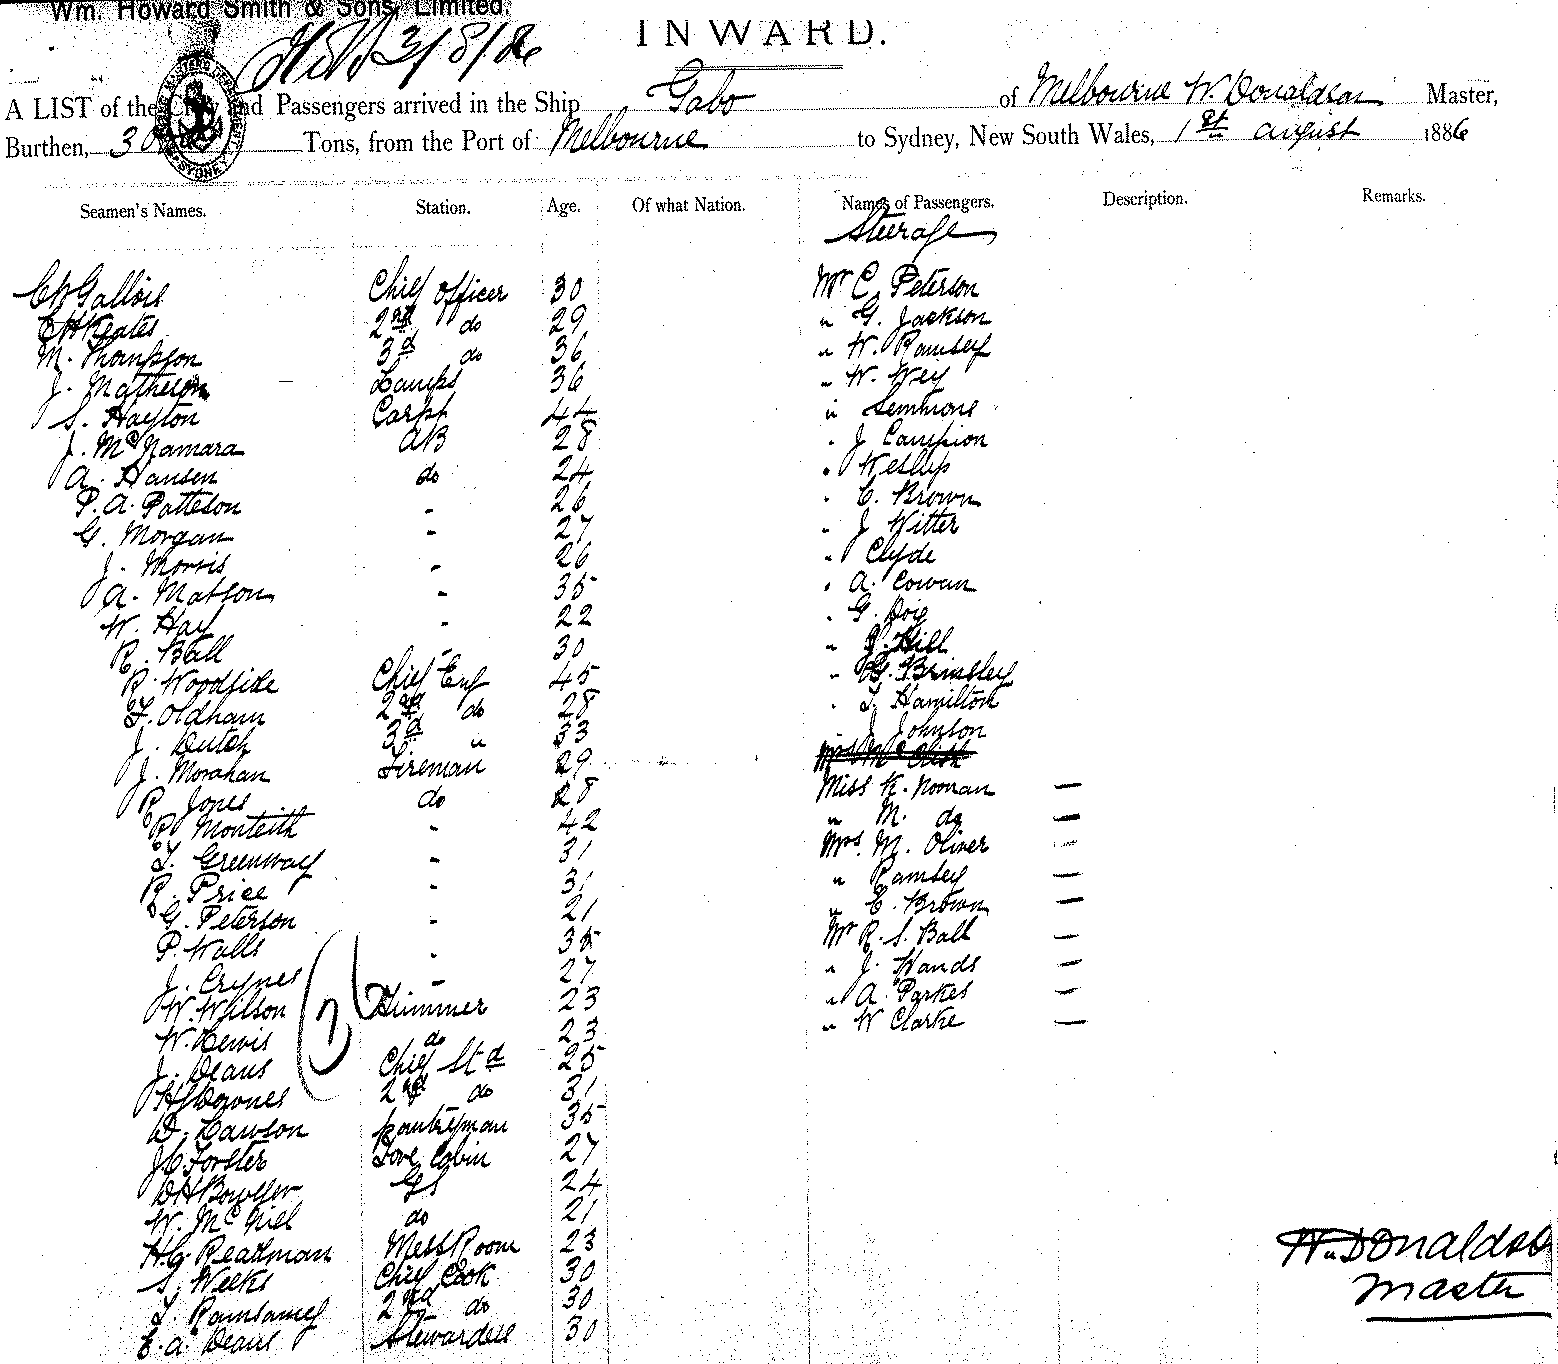 Wm. Howard Smith & Sons, Limited.
3/8/86
INWARD.
A LIST of the Crew and Passengers arrived in the Ship Gabo of Melbourne W. Donaldson Master,
Burthen, Tons, from the Port of Melbourne to Sydney, New South Wales, 1st august 1886
Seamen's Names. Station. Age. Of what Nation. Names of Passengers. Description. Remarks.
Steerage
Gallois Chief Officer 30 Mr C. Peterson
Keates 2nd do 29 " G. Jackson
M. Thompson 3d do 36 " W. Ramsey
J. Matheson Lamps 36 " W. Wey
S. Hayton Carpt 44 " Semmons
J. McNamara AB 28 " J Campion
A. Hansen do 24 "
P. A. Patteson " 26 " C. Brown
G. Morgan " 27 " J Witter
J. Morris " 26 " Clyde
A. Matson " 35 " A. Cowan
W. Hay " 22 " G. Doig
R. Ball " 30 " Hill
R. Woodside Chief Eng 45 " G. Brinsley
T. Oldham 2nd do 28 " T. Hamilton
J. Dutch 3d " 33 " J Johnson
J. Morahan Fireman 29
R. Jones do 28 Miss K. Noonan —
R. Monteith " 42 " M. do —
T. Greenway " 31 Mrs. M. Oliver —
R. Price " 31 " Ramsey —
G. Peterson " 21 " E. Brown —
P. Walls " 35 Mr R. S. Ball —
J. Crynes " 27 " J. Hands —
W. Wilson Trimmer 23 " A. Parkes —
W. Lewis do 23 " W Clarke —
J. Deans Chief Std 25
H J Downes 2nd do 31
D. Lawson pantryman 35
J C Forster Fore Cabin 27
D H Bowyer GS 24
W. McNiel do 21
H. G. Readman Mess Room 23
S. Weeks Chief Cook 30
T. Ramsamy 2nd do 30
E. A. Deans Stewardess 30
W. Donaldson
Master